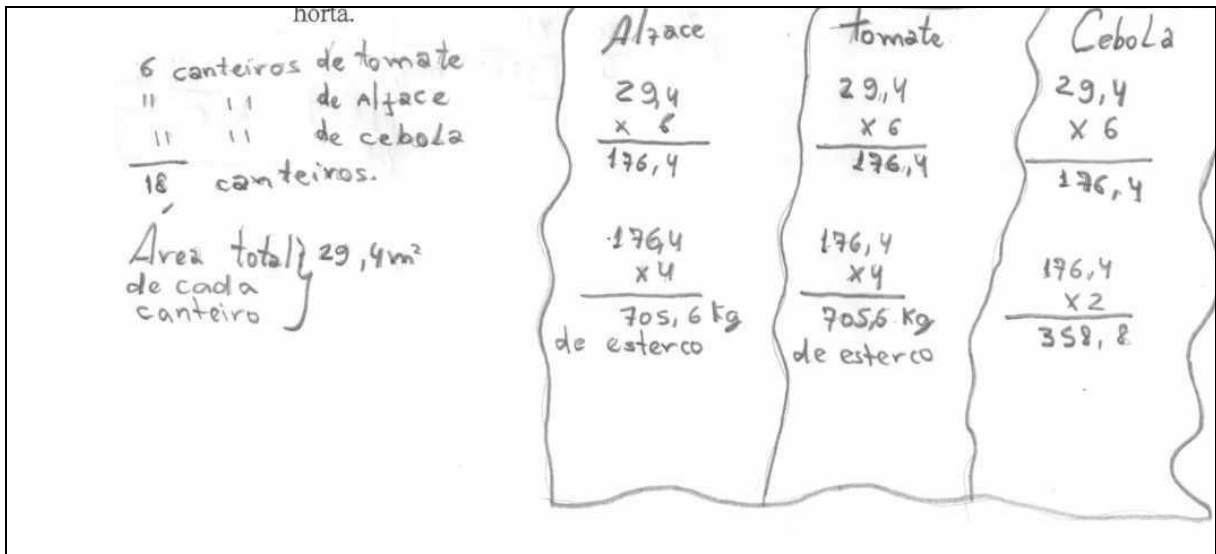 horta.
6 canteiros de tomate
" " de Alface
" " de cebola
18 canteiros.
Área total} 29,4m²
de cada
canteiro
Alface
29,4
x 6
176,4
176,4
x 4
705,6 kg
de esterco
Tomate
29,4
x 6
176,4
176,4
x 4
705,6 Kg
de esterco
Cebola
29,4
x 6
176,4
176,4
x 2
358,8